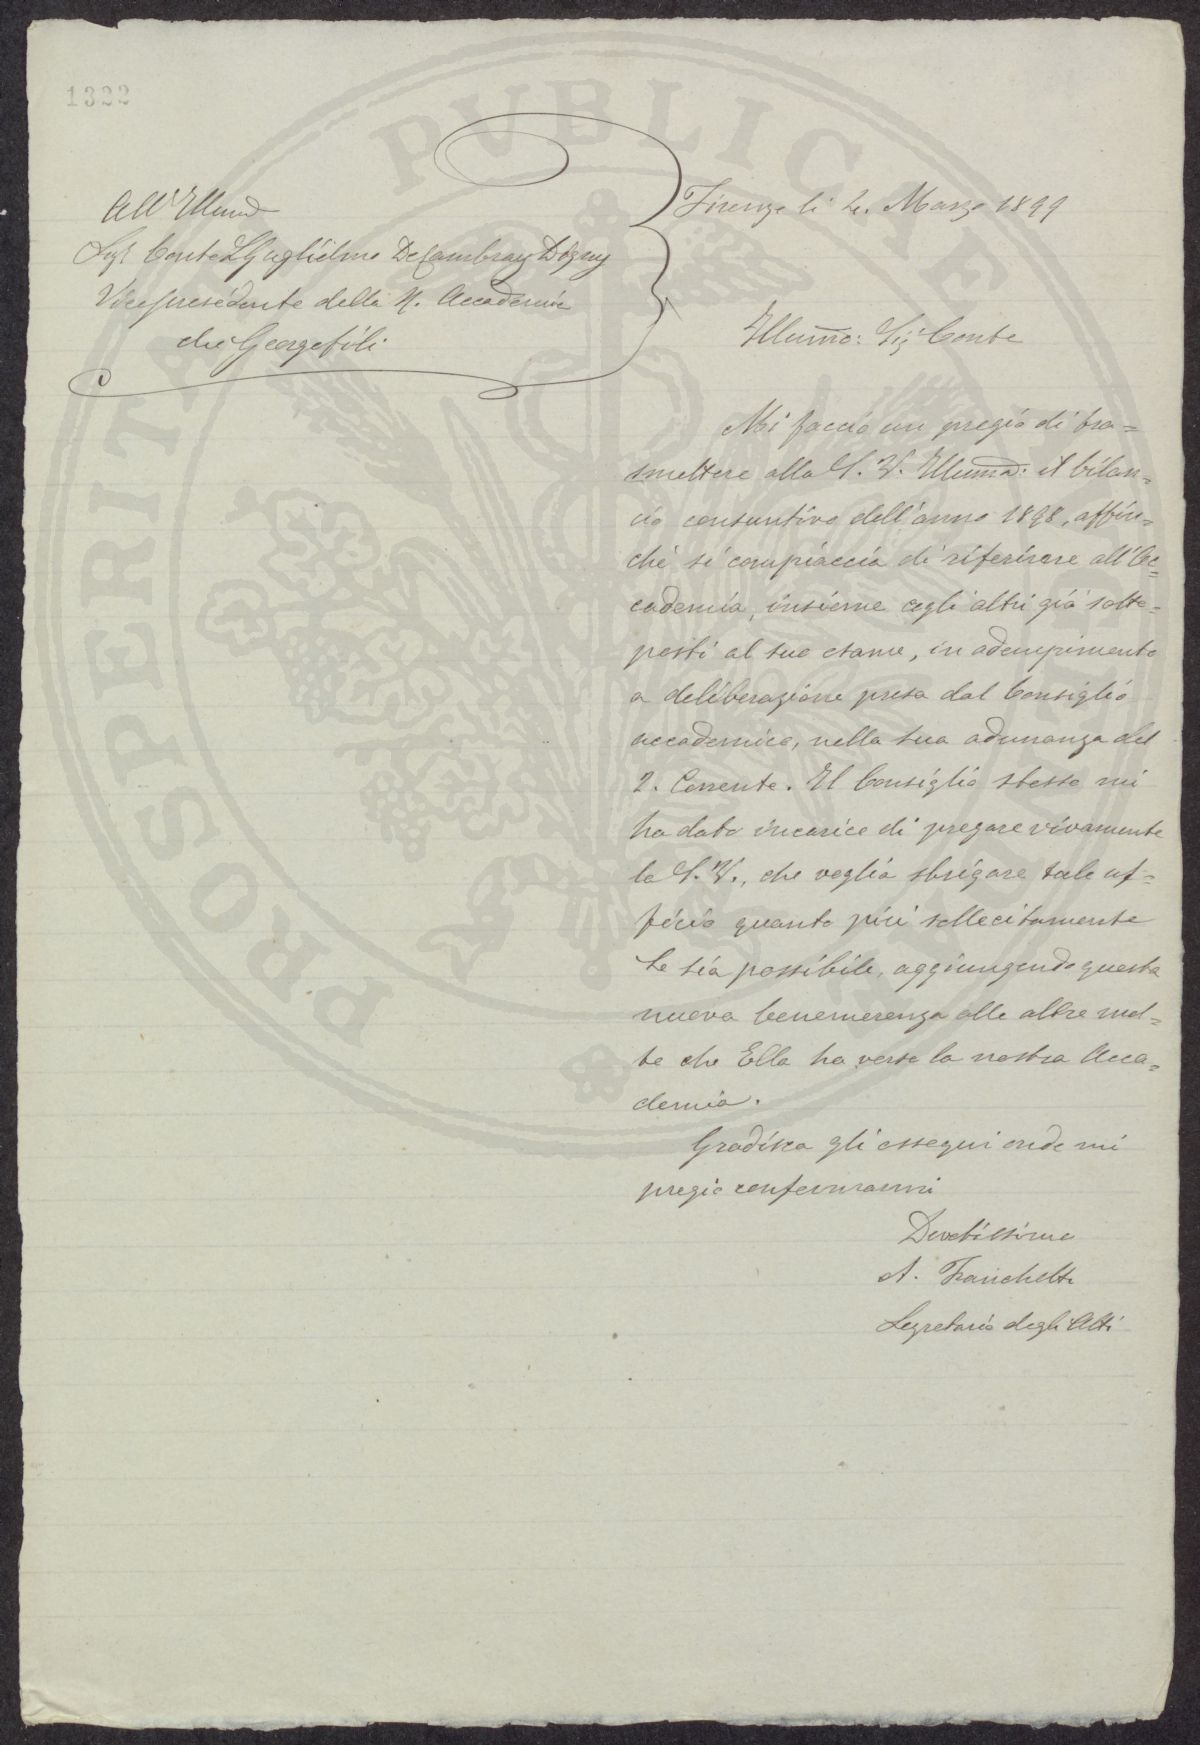 1322
All'Illmo
Sigr Conte Guglielmo De Cambray Digny
Vicepresidente della R. Accademia
dei Georgofili
Firenze li 4. Marzo 1899
Illumo: Sigr Conte
Mi faccio un pregio di tra=
smettere alla S. V. Illuma: il bilan=
cio consuntivo dell'anno 1898, affin=
chè si compiaccia di riferirore all'Ac=
cademia, insieme cogli altri già sotto=
posti al suo esame, in adempimento
a deliberazione presa dal Consiglio
accademico, nella sua adunanza del
2. Corrente. Il Consiglio stesso mi
ha dato incarico di pregare vivamente
la S. V., che voglia sbrigare tale uf=
ficio quanto più sollecitamente
le sia possibile, aggiungendo questa
nuova benemerenza alle altre mol=
te che Ella ha verso la nostra Acca=
demia.
Gradisca gli ossequi onde mi
pregio confermarmi
Devotissimo
A. Franchetti
Segretario degli Atti
PROSPERITATI PUBLICAE